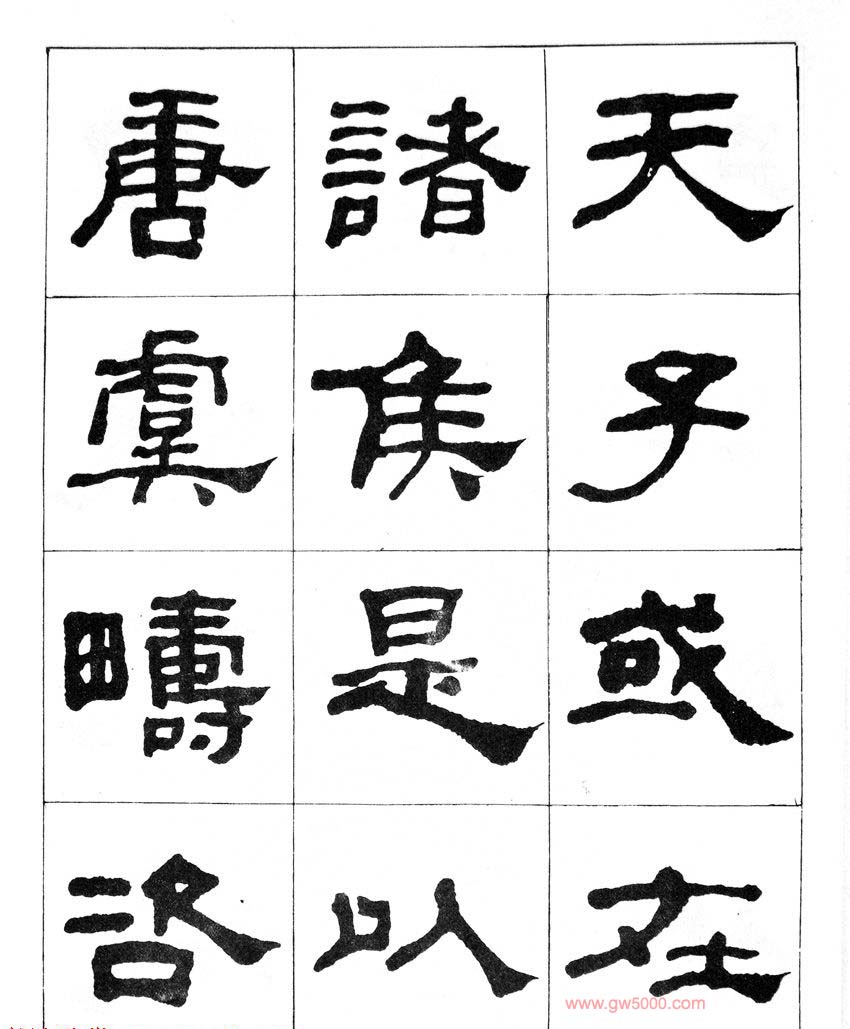 天子或在
諸侯是以
唐虞疇咨
www.gw5000.com